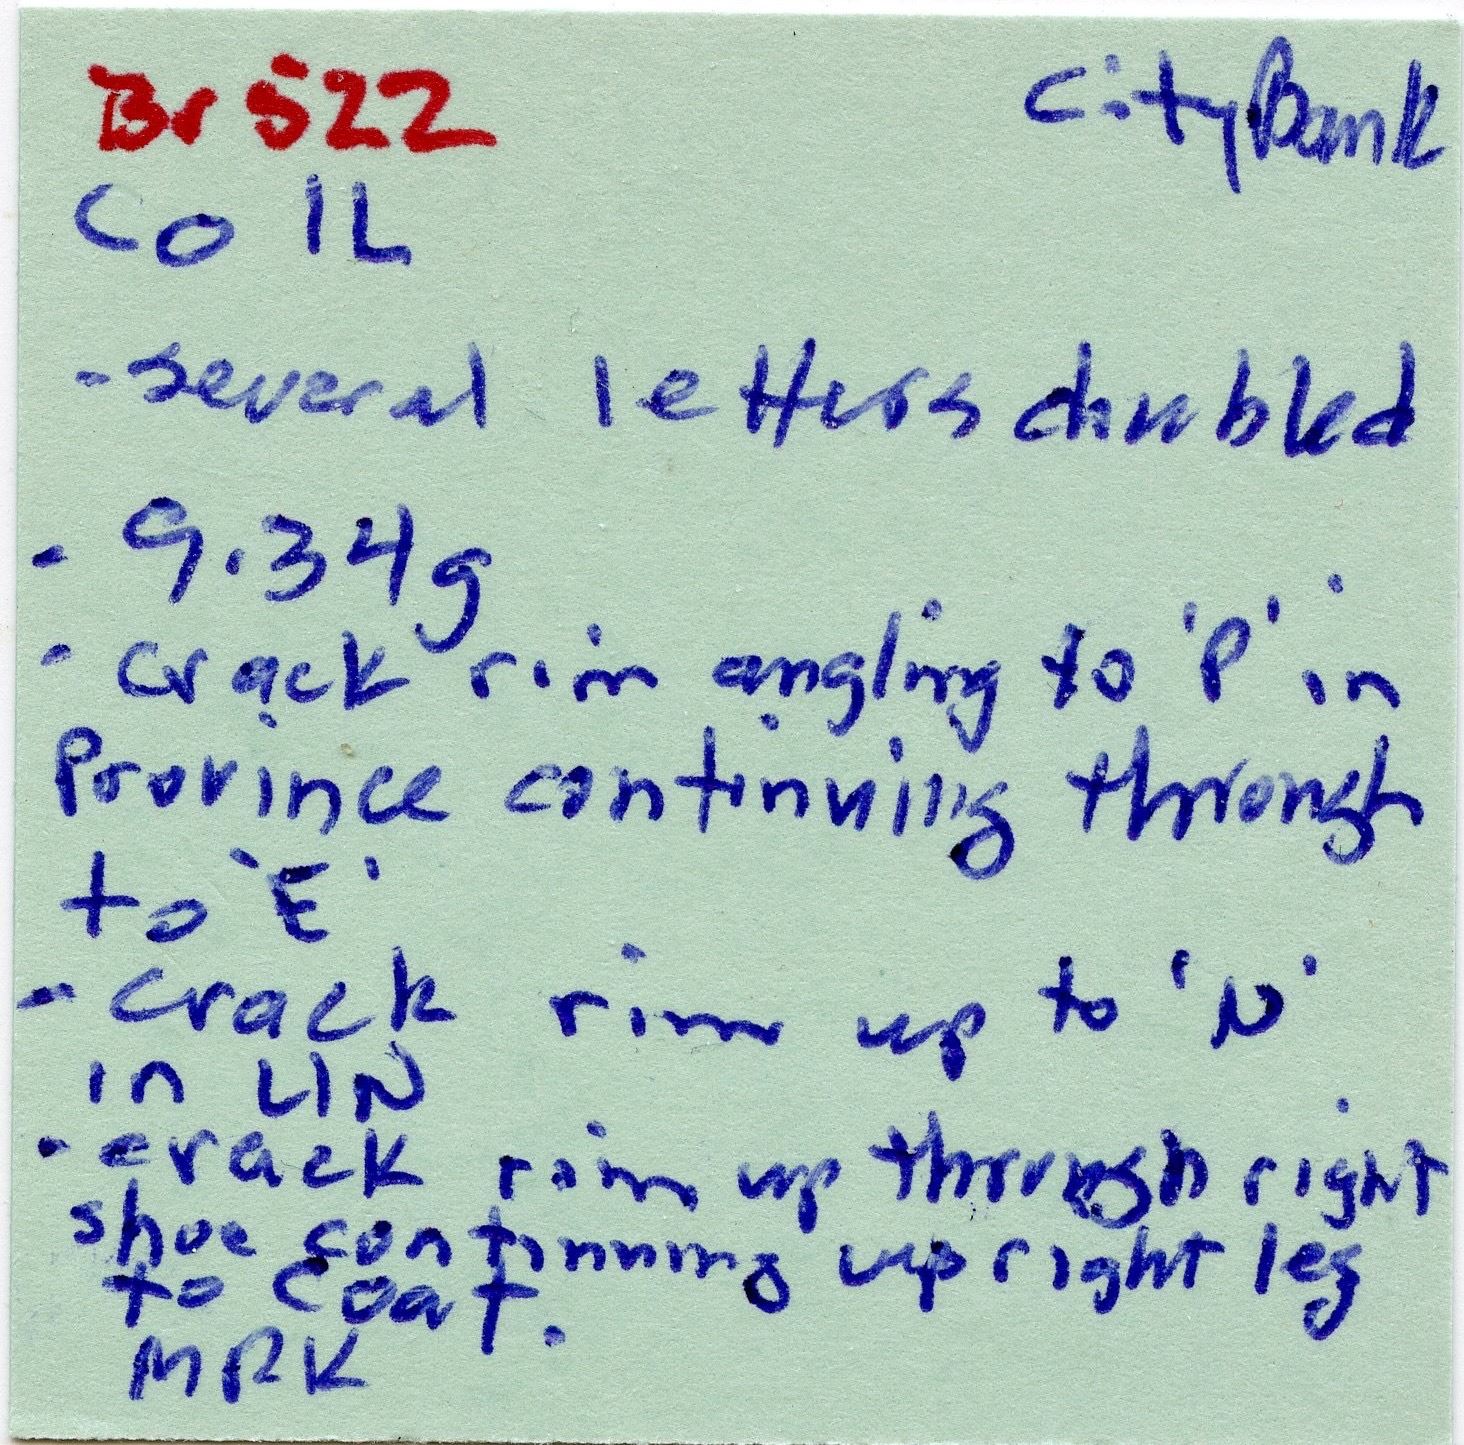 Br 522 City Bank
Co 1L
- several letters dubled
- 9.34g
- crack rim angling to 'P' in
Province continuing through
to 'E'
- crack rim up to 'N'
in LIN
- crack rim up through right
shoe continuing up right leg
to coat.
MRK